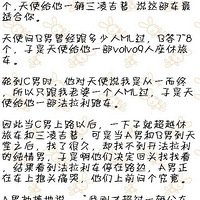 个,天使给他一辆三凌吉普,说这部车最
适合你。
天使问B男曾经跟多少人ML过,B答了8
个,于是天使给他一部volvo9人座休旅
车。
轮到C男时,他对天使说我是从一而终
,所以只跟我老婆一个人ML过,于是天
使给他一部法拉利跑车。
因此当C男上路以后,一下子就超越休
旅车和三凌吉普,可是当A男和B男到天
堂之后,找了很久,却找不到开法拉利
的纯情男,于是啊他们决定回头找找看
,结果看到法拉利车停在路边,A男正
在车上抱头痛哭,他们上前问个究竟。